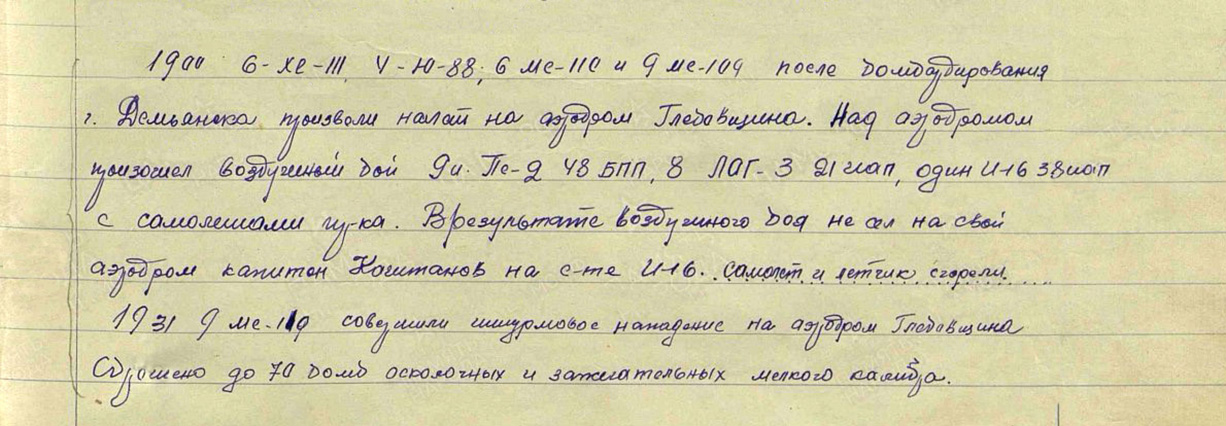 19⁰⁰ 6-ХЕ-111, 4-Ю-88, 6 МЕ-110 и 9 МЕ-109 после бомбардирования
г. Демьянска произвели налет на аэродром Глебовщина. Над аэродромом
произошел воздушный бой 9и. Пе-2 48 БПП, 8 ЛАГ-3 21 иап, один И-16 38 иап
с самолетами пр-ка. В результате воздушного боя не сел на свой
аэродром капитан Каштанов на с-те И-16. Самолет и летчик сгорели.
19³¹ 9 МЕ-109 совершили штурмовое нападение на аэродром Глебовщина
Сброшено до 70 бомб осколочных и зажигательных мелкого калибра.